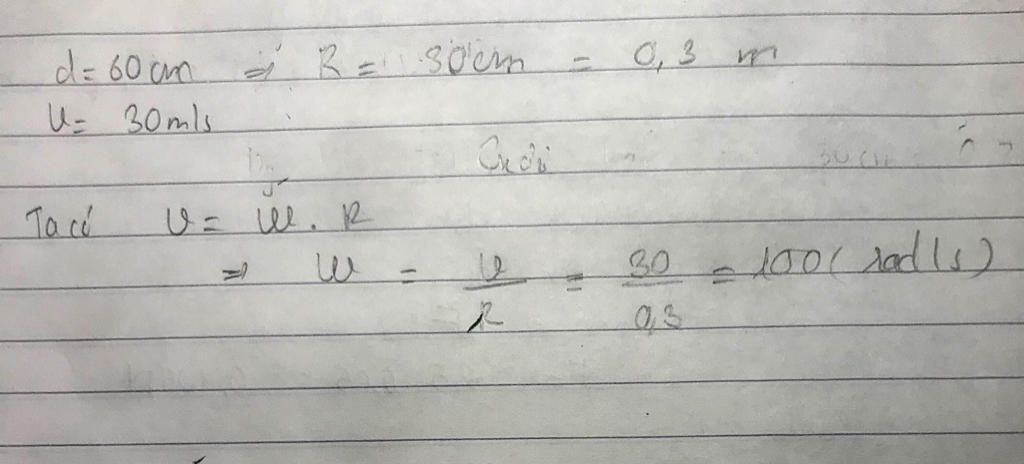 d = 60 cm ⇒ R = 30cm = 0,3 m
v = 30m/s
Ta có v = ω . R
⇒ ω = v/R = 30/0,3 = 100 ( rad/s )